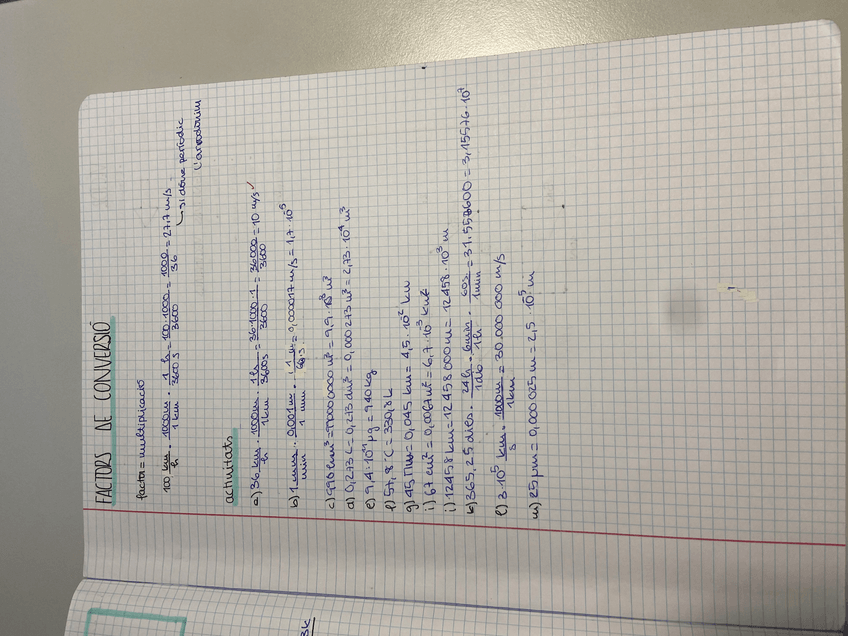 FACTORS DE CONVERSIÓ
factor = multiplicació
100 km/h · 1000m/1 km · 1 h/3600 s = 100·1000/3600 = 1000/36 = 27,7 m/s
↳ si dóna periòdic
l'arrodonim
activitats
a) 36 km/h · 1000m/1km · 1h/3600s = 36·1000·1/3600 = 36000/3600 = 10 m/s ✓
b) 1 mm/min · 0,001m/1 mm · 1 m/60 s = 0,000017 m/s = 1,7 · 10⁻⁵
d) 0,273 L = 0,273 dm³ = 0,000273 m³ = 2,73 · 10⁻⁴ m³
e) 9,4 · 10¹¹ µg = 940 kg
f) 57,8 °C = 330,8 k
g) 45 mm = 0,045 km = 4,5 · 10⁻² km
i) 67 cm² = 0,0067 m² = 6,7 · 10⁻³
j) 12458 km = 12 458 000 m = 12458 · 10³ m
k) 365,25 dies · 24h/1db · 6min/1h · 60s/1min = 31.557600 = 3,15576 · 10⁷
l) 3·10⁵ km/s · 1000m/1km = 30.000 000 m/s
m) 25 µm = 0,000 025 m = 2,5 · 10⁻⁵ m
3k